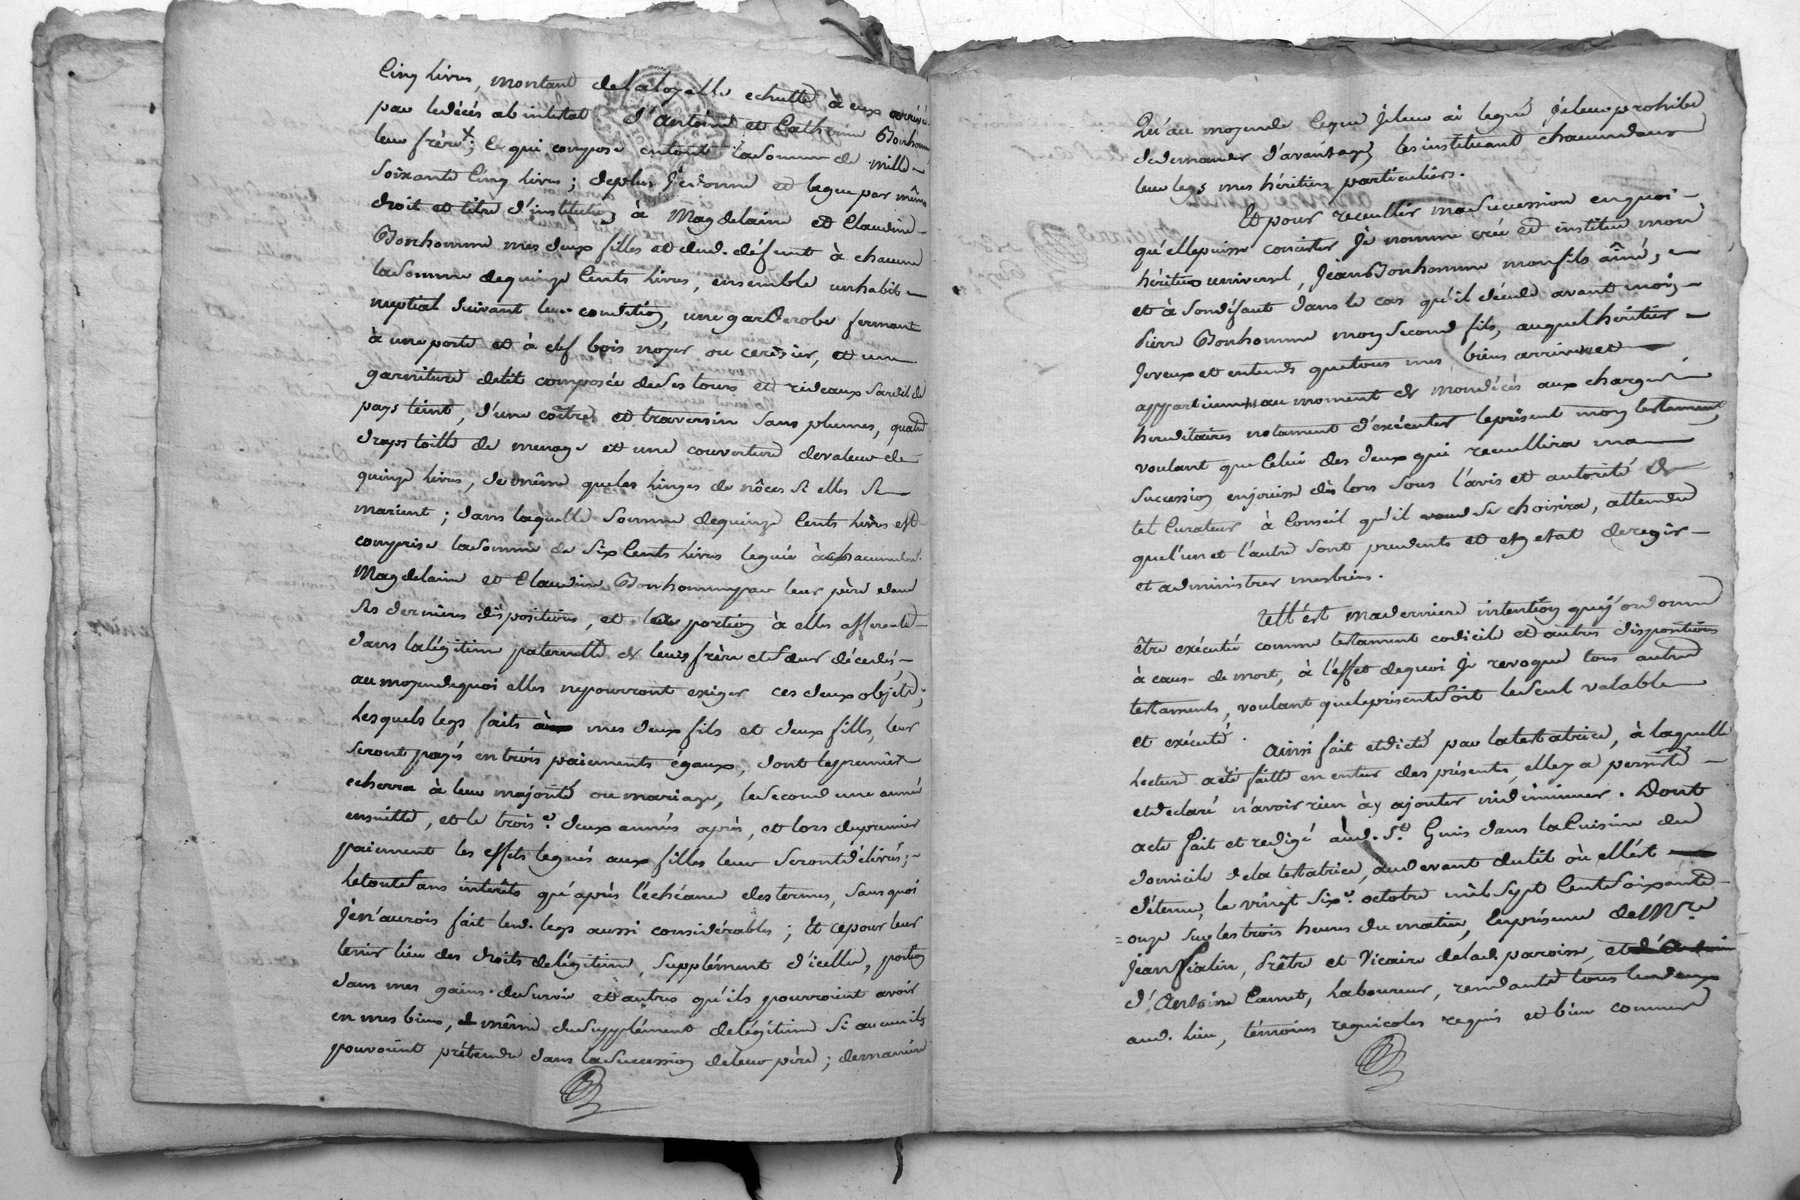 Cinq livres, montant de la loy elle echutte à eux arrivé
par le décés ab intestat d'Antoine et Catherine Bonhomme
leur frère; Ce qui compose en tout la somme de mille
soixante Cinq livres; de plus Je donne et legue par même
droit et titre d'institution à Magdelaine et Claudine
Bonhomme mes deux filles et dud. défunt à chacune
la somme de quinze Cents livres, ensemble un habit
nuptial suivant leur condition, une garderobe fermant
à une porte et à clef bois noyer ou cerisier, et une
garniture de lit composée de ses tours et rideaux sardil de
pays teint, d'une coëtre et traversin sans plumes, quatre
draps toille de menage et une couverture de valeur de
quinze livres, de même que les linges de nôces si elles se
marient; dans laquelle somme de quinze Cents livres est
comprise la somme de six Cents livres leguée à chacune
Magdelaine et Claudine Bonhomme par leur père dans
ses dernières dispositions, et la portion à elles afferente
dans la légitime paternelle de leurs frère et sœur décedés
au moyen de quoi elles ne pourront exiger ces deux objets;
Lesquels legs faits à mes deux fils et deux filles, leur
seront payés en trois paiements égaux, dont le premier
echerra à leur majorité ou mariage, le second une année
ensuitte, et le trois.e deux années après, et lors du premier
paiement les effets legués aux filles leur seront délivrés;
le tout sans intérêts qu'après l'échéance des termes, sans quoi
Je n'aurois fait lesd. legs aussi considérables; Et ce pour leur
tenir lieu des droits de légitime, supplément d'icelle, portion
dans mes gains de survie et autres qu'ils pourroient avoir
en mes biens, et même du supplément de légitime si aucun ils
pouvoint prétendre dans la succession de leur père; de manière
Qu'au moyen de ce que Je leur ai legué Je leur prohibe
de demander d'avantage, les instituant chacun dans
leur legs mes héritiers particuliers.
Et pour recueillir ma succession en quoi
qu'elle puisse concister Je nomme crée et institue mon
héritier universel, Jean Bonhomme mon fils aîné,
et à son défaut dans le cas qu'il décède avant moi,
Pierre Bonhomme mon second fils, auquel héritier
Je veux et entends que tous mes biens arrivent et
appartiennent au moment de mon décés aux charges
hereditaires notament d'exécuter le présent mon testament,
voulant que Celui des deux qui recueillira ma
succession en jouisse dès lors sous l'avis et autorité de
tel Curateur à Conseil qu'il se choisira, attendu
que l'un et l'autre sont prudents et en etat de regir
et administrer mes biens.
Tell'est ma derniere intention que j'ordonne
être exécuté comme testament codicile et autres dispositions
à cause de mort, à l'effet de quoi Je revoque tous autres
testaments, voulant que le présent soit le seul valable
et exécuté.
Ainsi fait et dicté par la testatrice, à laquelle
lecture a été faitte en entier des présentes, elle y a persisté
et declaré n'avoir rien à y ajouter ni diminuer. Dont
acte fait et redigé aud. St Genis dans la Cuisine du
domicile de la testatrice, au devant du lit où ell'est
détenue, le vingt six.e octobre mil sept Cent soixante
onze sur les trois heures du matin, En présence de Mre
Jean Fialin, Prêtre et Vicaire de lad. paroisse, et
d'Antoine Camet, Laboureur, residants tous les deux
aud. lieu, témoins regnicoles requis et bien connus